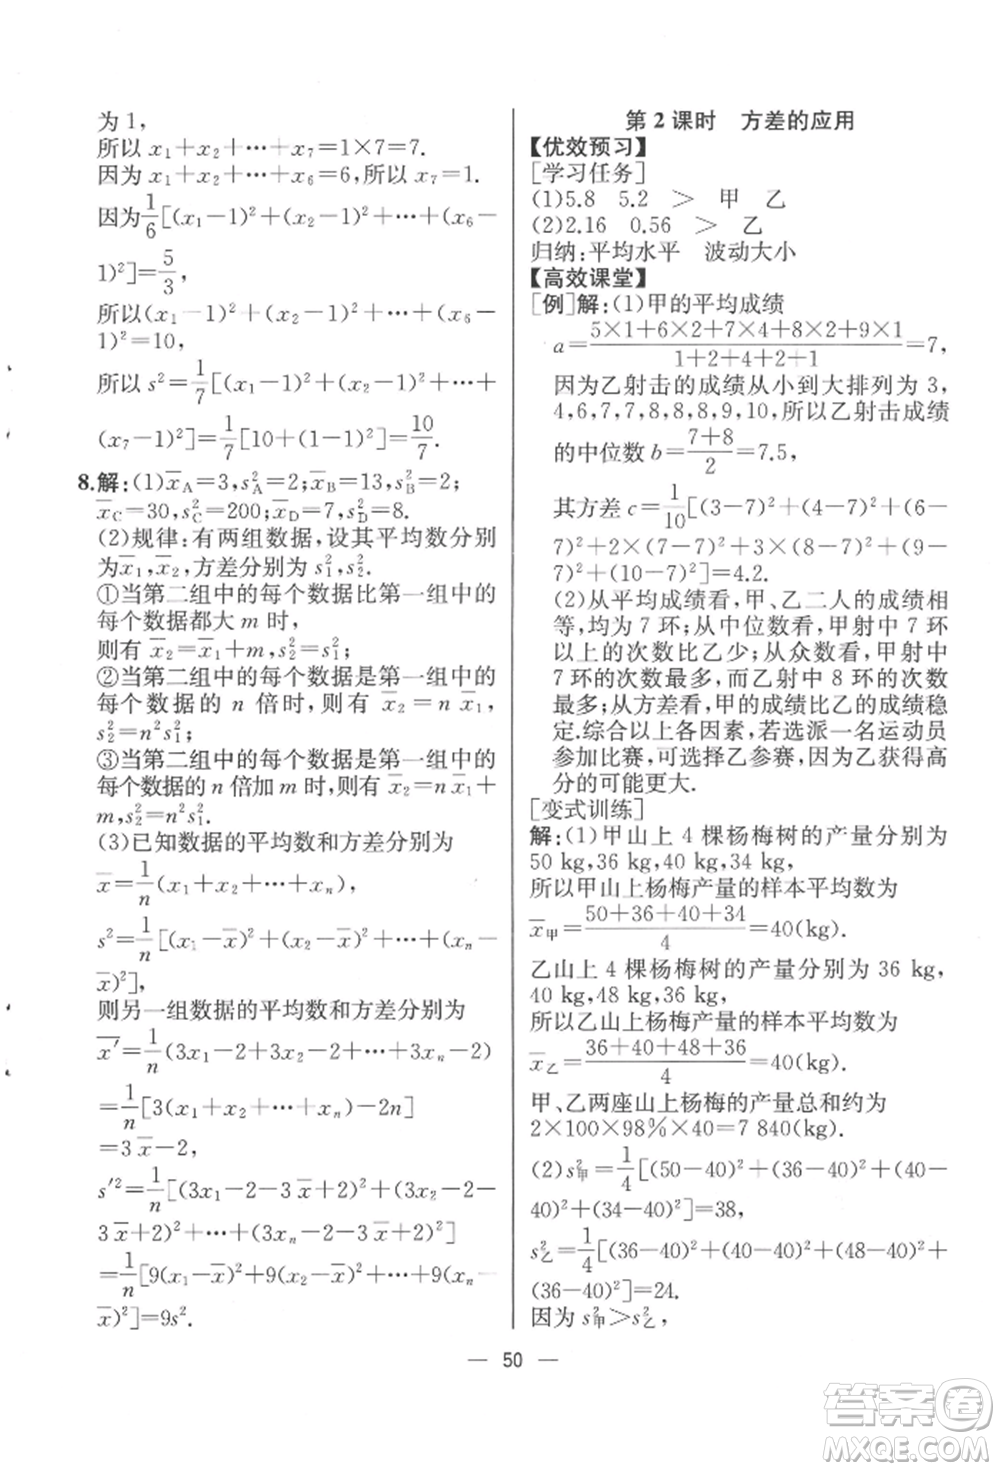 为1,
所以 x₁+x₂+…+x₇=1×7=7.
因为 x₁+x₂+…+x₆=6,所以 x₇=1.
因为 1/6[(x₁-1)²+(x₂-1)²+…+(x₆-
1)²]=5/3,
所以(x₁-1)²+(x₂-1)²+…+(x₆-
1)²=10,
所以 s²=1/7[(x₁-1)²+(x₂-1)²+…+
(x₇-1)²]=1/7[10+(1-1)²]=10/7.
8.解:(1)x̄_A=3,s²_A=2;x̄_B=13,s²_B=2;
x̄_C=30,s²_C=200;x̄_D=7,s²_D=8.
(2)规律:有两组数据,设其平均数分别
为x̄₁,x̄₂,方差分别为s₁²,s₂².
①当第二组中的每个数据比第一组中的
每个数据都大 m 时,
则有 x̄₂=x̄₁+m,s₂²=s₁²;
②当第二组中的每个数据是第一组中的
每个数据的 n 倍时,则有 x̄₂=n x̄₁,
s₂²=n²s₁²;
③当第二组中的每个数据是第一组中的
每个数据的 n 倍加 m 时,则有 x̄₂=n x̄₁+
m,s₂²=n²s₁².
(3)已知数据的平均数和方差分别为
x̄=1/n(x₁+x₂+…+xₙ),
s²=1/n[(x₁-x̄)²+(x₂-x̄)²+…+(xₙ-
x̄)²],
则另一组数据的平均数和方差分别为
x̄′=1/n(3x₁-2+3x₂-2+…+3xₙ-2)
=1/n[3(x₁+x₂+…+xₙ)-2n]
=3x̄-2,
s′²=1/n[(3x₁-2-3x̄+2)²+(3x₂-2-
3x̄+2)²+…+(3xₙ-2-3x̄+2)²]
=1/n[9(x₁-x̄)²+9(x₂-x̄)²+…+9(xₙ-
x̄)²]=9s².
第2课时 方差的应用
【优效预习】
[学习任务]
(1)5.8 5.2 > 甲 乙
(2)2.16 0.56 > 乙
归纳:平均水平 波动大小
【高效课堂】
[例]解:(1)甲的平均成绩
a=(5×1+6×2+7×4+8×2+9×1)/(1+2+4+2+1)=7,
因为乙射击的成绩从小到大排列为 3,
4,6,7,7,8,8,8,9,10,所以乙射击成绩
的中位数 b=(7+8)/2=7.5,
其方差 c=1/10[(3-7)²+(4-7)²+(6-
7)²+2×(7-7)²+3×(8-7)²+(9-
7)²+(10-7)²]=4.2.
(2)从平均成绩看,甲、乙二人的成绩相
等,均为 7 环;从中位数看,甲射中 7 环
以上的次数比乙少;从众数看,甲射中
7 环的次数最多,而乙射中 8 环的次数
最多;从方差看,甲的成绩比乙的成绩稳
定.综合以上各因素,若选派一名运动员
参加比赛,可选择乙参赛,因为乙获得高
分的可能更大.
[变式训练]
解:(1)甲山上 4 棵杨梅树的产量分别为
50 kg,36 kg,40 kg,34 kg,
所以甲山上杨梅产量的样本平均数为
x̄甲=(50+36+40+34)/4=40(kg).
乙山上 4 棵杨梅树的产量分别为 36 kg,
40 kg,48 kg,36 kg,
所以乙山上杨梅产量的样本平均数为
x̄乙=(36+40+48+36)/4=40(kg).
甲、乙两座山上杨梅的产量总和约为
2×100×98%×40=7 840(kg).
(2)s²甲=1/4[(50-40)²+(36-40)²+(40-
40)²+(34-40)²]=38,
s²乙=1/4[(36-40)²+(40-40)²+(48-40)²+
(36-40)²]=24.
因为 s²甲>s²乙,
— 50 —
答案圈
MXQE.COM